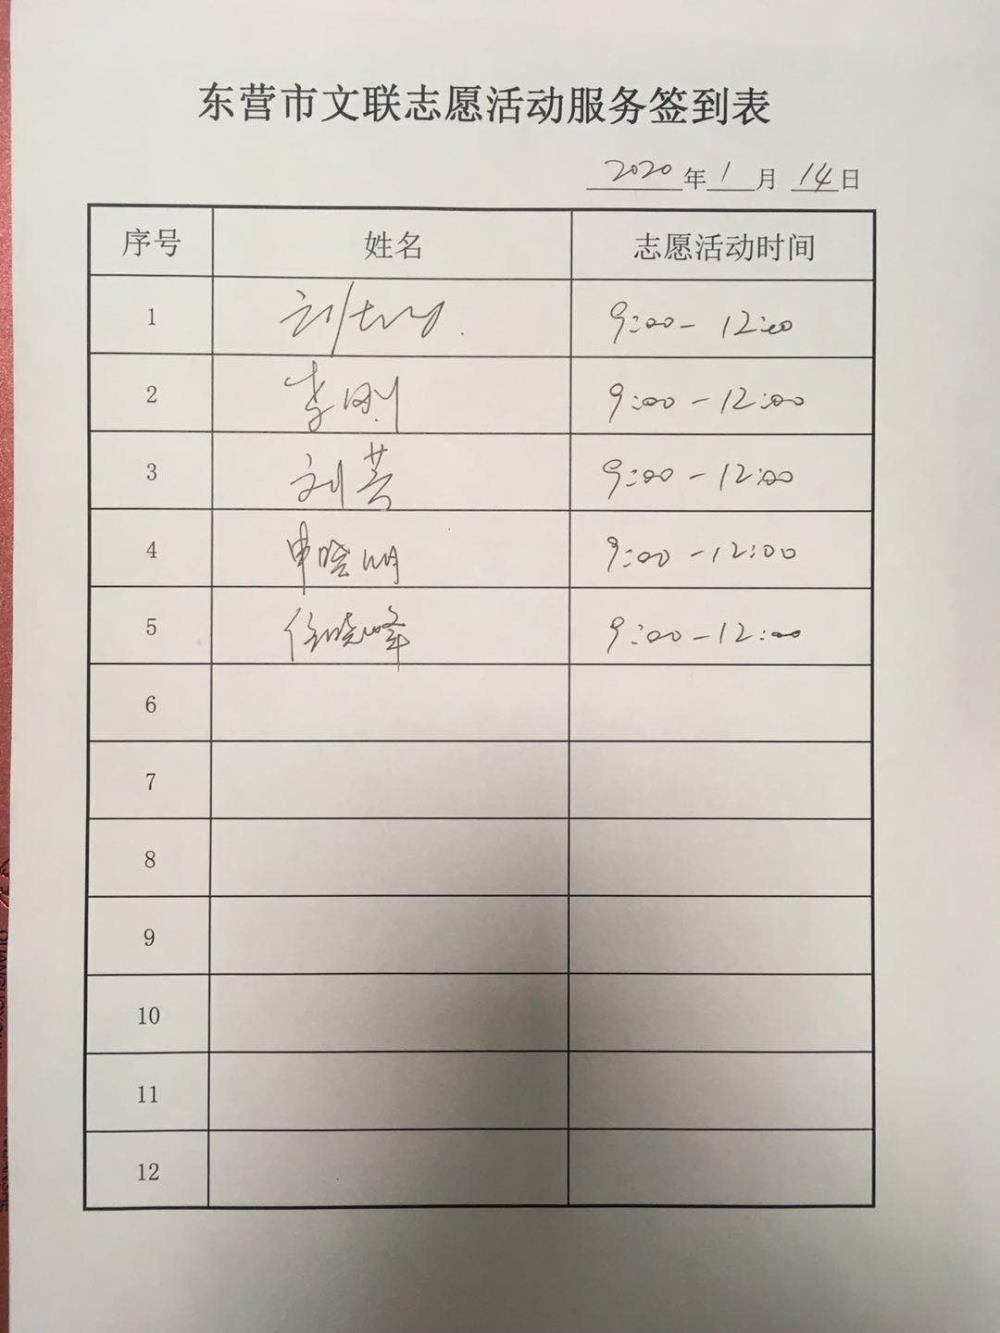 东营市文联志愿活动服务签到表
2020年1月14日
序号 姓名 志愿活动时间
1 刘 9:00-12:00
2 李刚 9:00-12:00
3 刘芸 9:00-12:00
4 申晓明 9:00-12:00
5 任晓峰 9:00-12:00
6
7
8
9
10
11
12